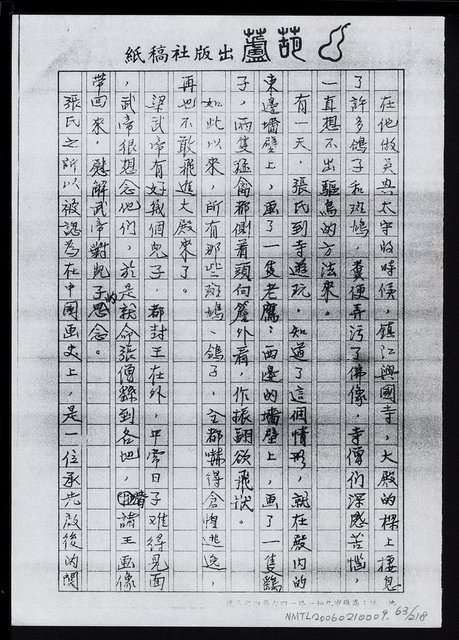 紙稿社版出蘆葫
在他做吳興太守的時侯，鎮江興國寺，大殿的樑上棲息
了許多鴿子和斑鳩，糞便弄污了佛像，寺僧們深感苦惱，
一直想不出驅鳥的方法來。
有一天，張氏到寺遊玩，知道了這個情形，就在殿內的
東邊墻壁上，画了一隻老鷹；西邊的墻壁上，画了一隻鷂
子，兩隻猛禽都側着頭向簷外看，作振翮欲飛狀。
如此以來，所有那些斑鳩、鴿子，全都嚇得倉惶逃逸，
再也不敢飛進大殿來了。
梁武帝有好幾個兒子，都封王在外，平常日子难得見面
，武帝很想念他們，於是就命張僧繇到各地，替諸王画像
带回來，慰解武帝對兒子的思念。
張氏之所以被認為在中國画史上，是一位承先啟後的関
NMTL20060210009. 63/218